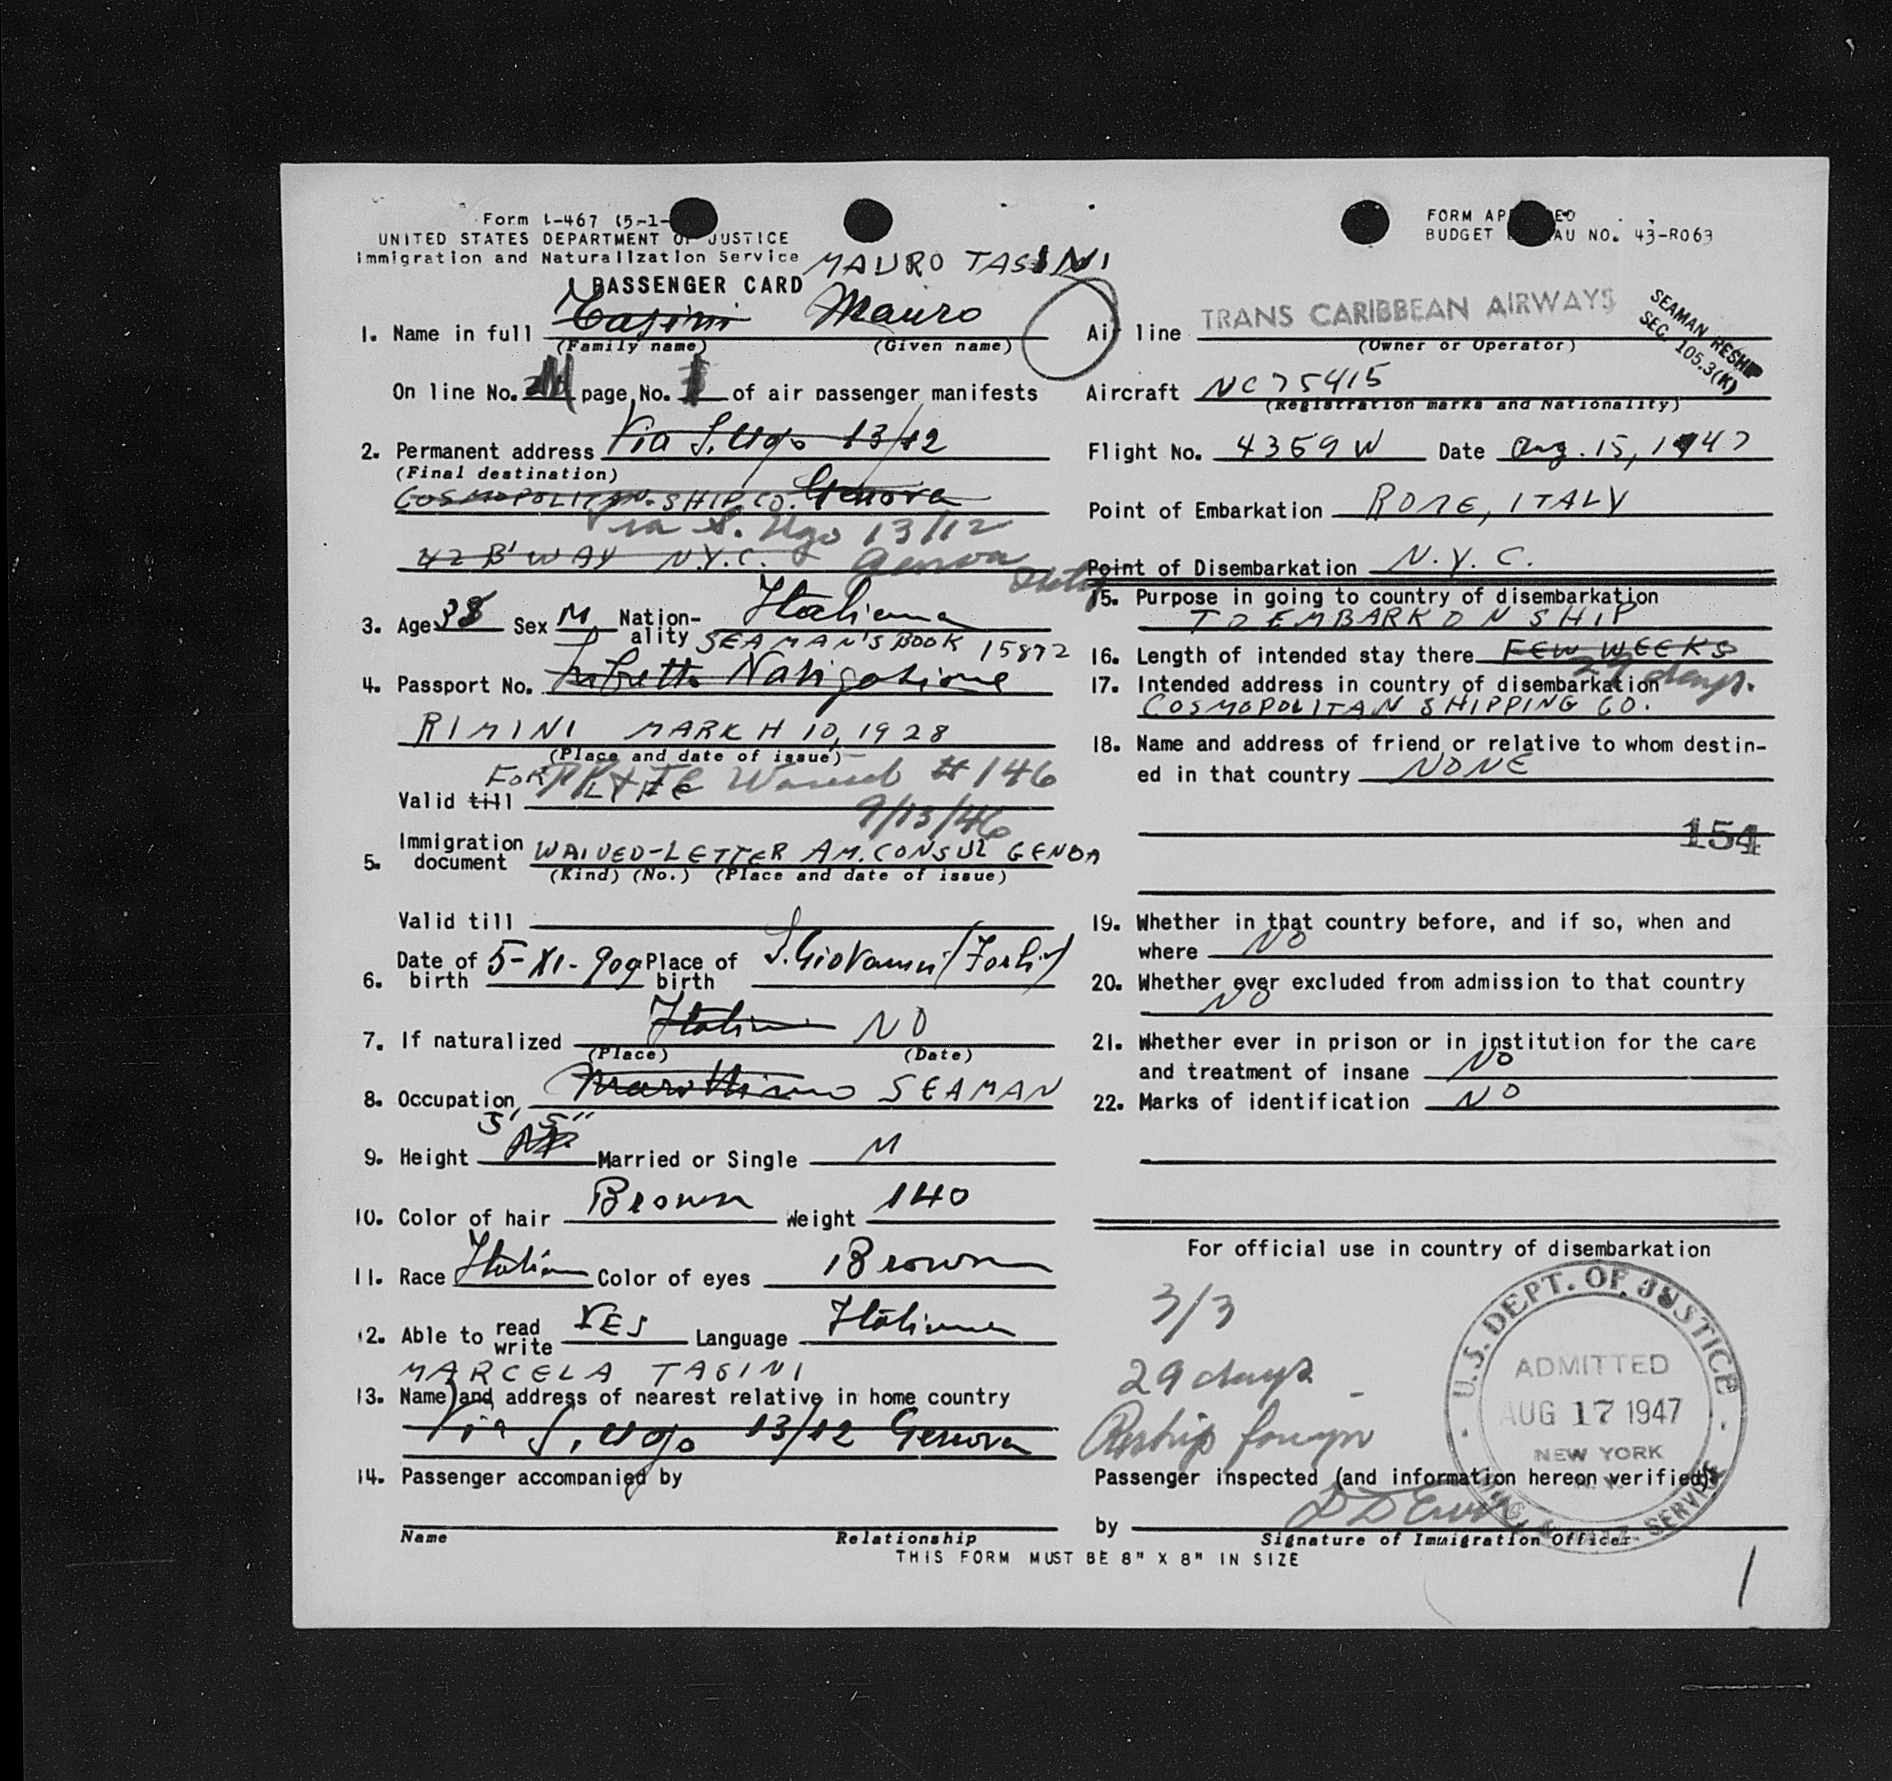 Form I-467 (5-1-
UNITED STATES DEPARTMENT OF JUSTICE
Immigration and Naturalization Service
PASSENGER CARD
MAURO TASINI
1. Name in full Tasini Mauro
(Family name) (Given name)
On line No. page No. of air passenger manifests
2. Permanent address Via S. Ugo 13/12
(Final destination)
COSMOPOLITAN SHIP. CO. Genova
Via S. Ugo 13/12
42 B'WAY N.Y.C. Genova
Italy
3. Age 38 Sex M. Nationality Italiana
SEAMAN'S BOOK 15872
4. Passport No. Libretto Navigazione
RIMINI MARCH 10, 1928
(Place and date of issue)
FOR PP & Waived # 146
Valid till
9/13/46
5. Immigration document WAIVED-LETTER AM. CONSUL GENOA
(Kind) (No.) (Place and date of issue)
Valid till
6. Date of birth 5-XI-909 Place of birth S. Giovanni (Forlì)
7. If naturalized NO
(Place) (Date)
8. Occupation Marittimo SEAMAN
5' 5"
9. Height Married or Single M
10. Color of hair Brown Weight 140
11. Race Italian Color of eyes Brown
12. Able to read write YES Language Italiana
MARCELA TASINI
13. Name and address of nearest relative in home country
Via S. Ugo 13/12 Genova
14. Passenger accompanied by
Name Relationship
FORM APP ED
BUDGET AU NO. 43-R063
Air line TRANS CARIBBEAN AIRWAYS
(Owner or Operator)
SEAMAN RESHIP
SEC. 105.3(K)
Aircraft NC75415
(Registration marks and Nationality)
Flight No. 4359W Date Aug. 15, 1947
Point of Embarkation ROME, ITALY
Point of Disembarkation N.Y.C.
15. Purpose in going to country of disembarkation
TO EMBARK ON SHIP
16. Length of intended stay there FEW WEEKS
29 days.
17. Intended address in country of disembarkation
COSMOPOLITAN SHIPPING CO.
18. Name and address of friend or relative to whom destined in that country NONE
154
19. Whether in that country before, and if so, when and
where NO
20. Whether ever excluded from admission to that country
NO
21. Whether ever in prison or in institution for the care
and treatment of insane NO
22. Marks of identification NO
For official use in country of disembarkation
3/3
29 days
Reship foreign
U.S. DEPT. OF JUSTICE
ADMITTED
AUG 17 1947
NEW YORK
N.Y.
IMMIG. & NATZ. SERVICE
Passenger inspected (and information hereon verified)
by
Signature of Immigration Officer
THIS FORM MUST BE 8" X 8" IN SIZE
1